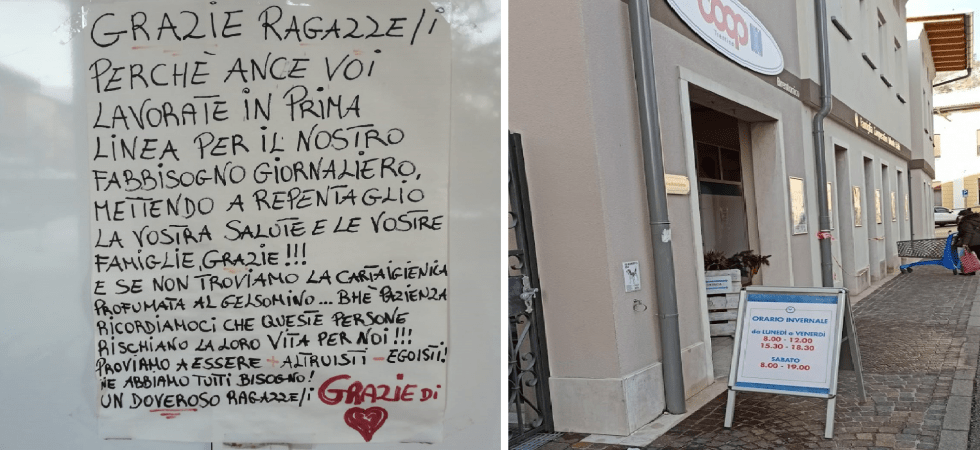 GRAZIE RAGAZZE/i
PERCHÈ ANCE VOI
LAVORATE IN PRIMA
LINEA PER IL NOSTRO
FABBISOGNO GIORNALIERO,
METTENDO A REPENTAGLIO
LA VOSTRA SALUTE E LE VOSTRE
FAMIGLIE, GRAZIE!!!
E SE NON TROVIAMO LA CARTAIGIENICA
PROFUMATA AL GELSOMINO... BHÈ PAZIENZA
RICORDIAMOCI CHE QUESTE PERSONE
RISCHIANO LA LORO VITA PER NOI!!!
PROVIAMO A ESSERE + ALTRUISTI - EGOISTI!
NE ABBIAMO TUTTI BISOGNO!
UN DOVEROSO RAGAZZE/i GRAZIE DI
coop
ORARIO INVERNALE
da LUNEDÌ a VENERDÌ
8.00 - 12.00
15.30 - 18.30
SABATO
8.00 - 19.00